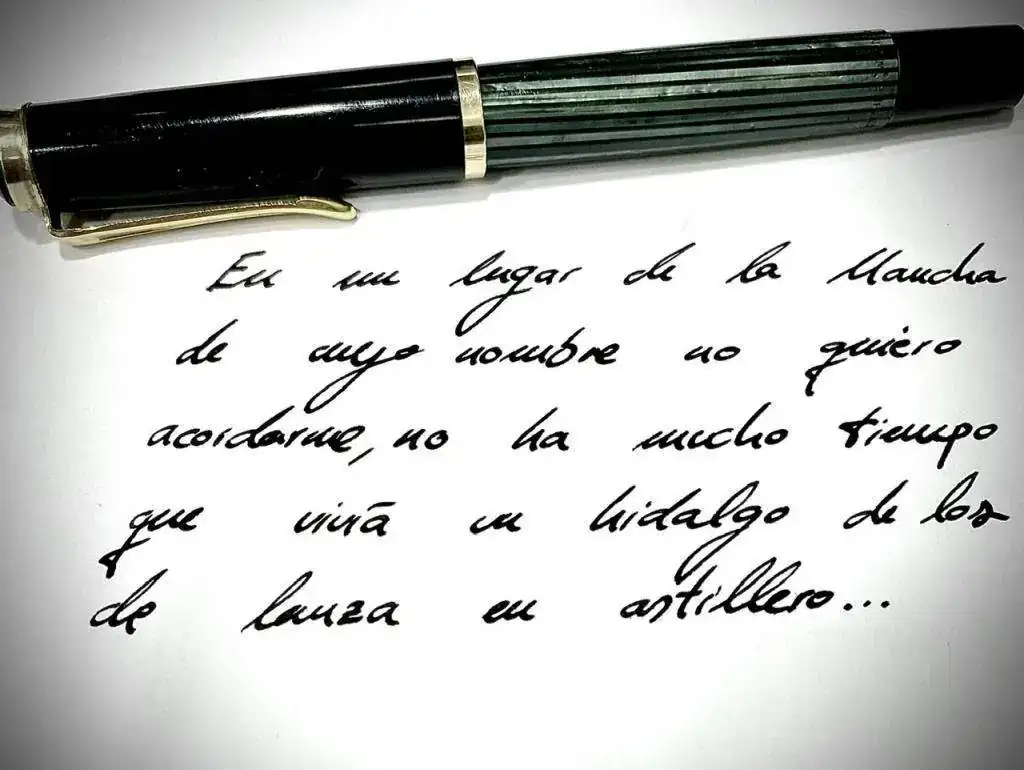 En un lugar de la Mancha
de cuyo nombre no quiero
acordarme, no ha mucho tiempo
que vivía un hidalgo de los
de lanza en astillero...